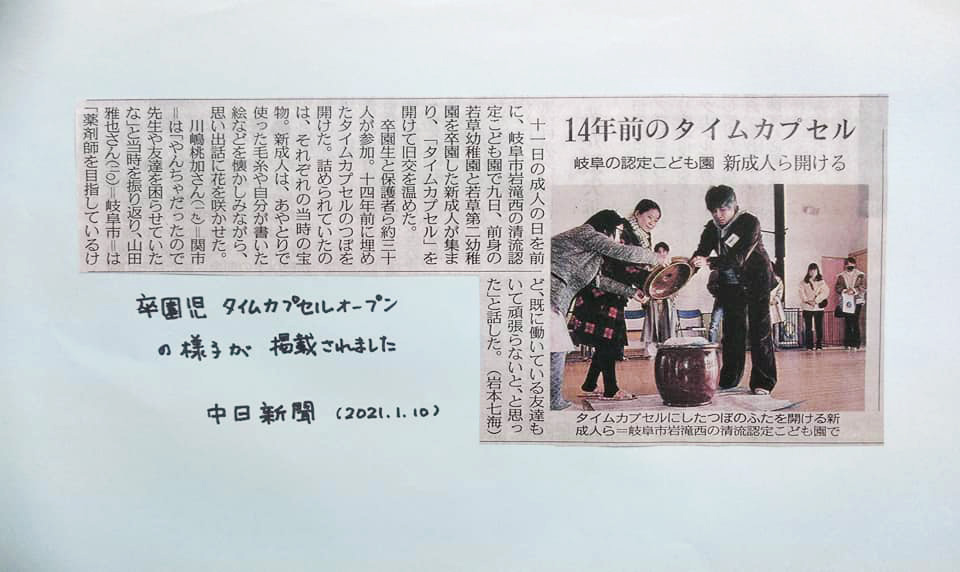 14年前のタイムカプセル
岐阜の認定こども園　新成人ら開ける
十一日の成人の日を前
に、岐阜市岩滝西の清流認
定こども園で九日、前身の
若草幼稚園と若草第二幼稚
園を卒園した新成人が集ま
り、「タイムカプセル」を
開けて旧交を温めた。
卒園生と保護者ら約三十
人が参加。十四年前に埋め
たタイムカプセルのつぼを
開けた。詰められていたの
は、それぞれの当時の宝
物。新成人は、あやとりで
使った毛糸や自分が書いた
絵などを懐かしみながら、
思い出話に花を咲かせた。
川嶋桃加さん（一九）＝関市
＝は「やんちゃだったので
先生や友達を困らせていた
な」と当時を振り返り、山田
雅也さん（二〇）＝岐阜市＝は
「薬剤師を目指しているけ
ど、既に働いている友達も
いて頑張らないと、と思っ
た」と話した。　（岩本七海）
タイムカプセルにしたつぼのふたを開ける新
成人ら＝岐阜市岩滝西の清流認定こども園で
卒園児 タイムカプセルオープン
の様子が 掲載されました
中日新聞 (2021.1.10)